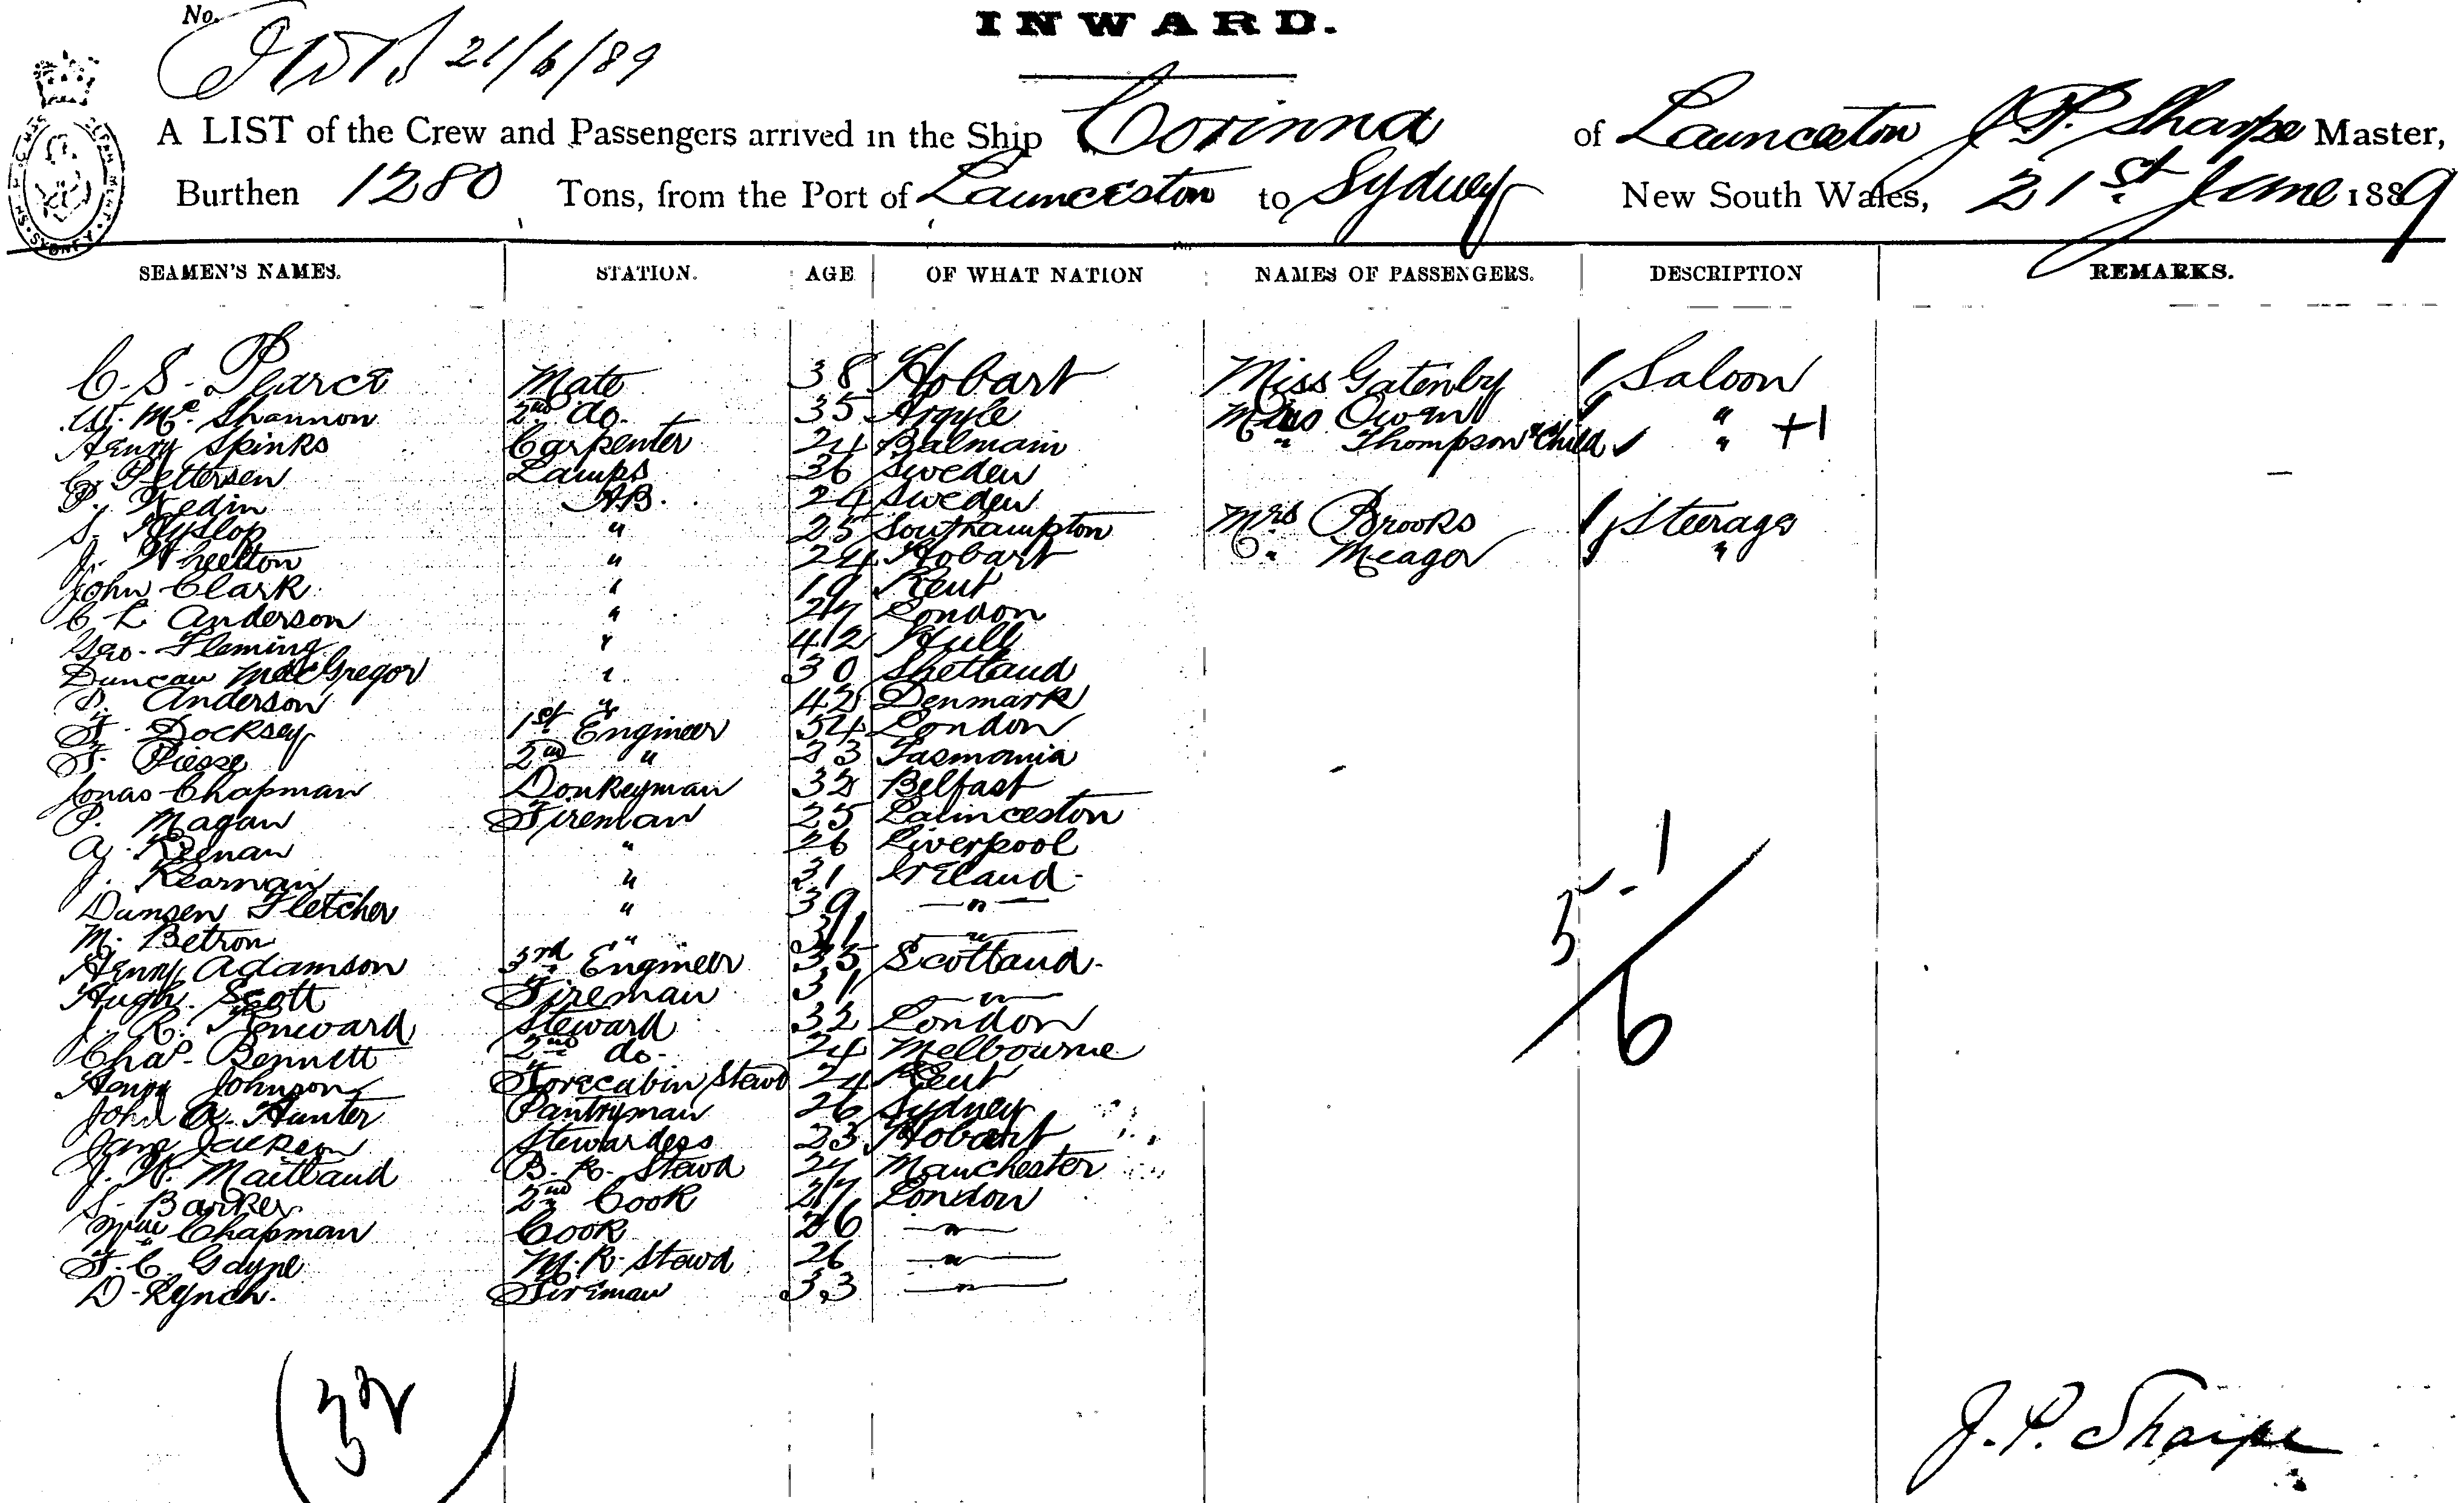 No.
21/6/89
INWARD.
A LIST of the Crew and Passengers arrived in the Ship Corinna of Launceston J. P. Sharpe Master,
Burthen 1280 Tons, from the Port of Launceston to Sydney New South Wales, 21st June 1889
SEAMEN'S NAMES. STATION. AGE OF WHAT NATION NAMES OF PASSENGERS. DESCRIPTION REMARKS.
C. S. Pearce Mate 38 Hobart Miss Gatenby 1 Saloon
W. Mc. Shannon 2nd do. 35 Argyle Owen "
Henry Spinks Carpenter 24 Balmain " Thompson & Child " +1
C. Pettersen Lamps 36 Sweden
P. Wedin AB. 24 Sweden
S. Hyslop " 25 Southampton Mrs Brooks 1 Steerage
J. Wheelton " 24 Hobart C. Meagor "
John Clark " 19 Kent
C. L. Anderson " 27 London
Geo. Fleming " 42 Hull
Duncan MacGregor " 30 Shetland
P. Anderson " 42 Denmark
F. Docksey 1st Engineer 54 London
F. Piesse 2nd " 23 Tasmania
Jonas Chapman Donkeyman 32 Belfast
P. Magan Fireman 25 Launceston
A. Keenan " 26 Liverpool
J. Kearnan " 31 Ireland
Dunsen Fletcher " 39 "
M. Betron " 31 "
Henry Adamson 3rd Engineer 35 Scotland
Hugh Scott Fireman 31 "
J. R. Kenward Steward 32 London
Chas. Bennett 2nd do. 24 Melbourne
Henry Johnson Forecabin Stewd 24 Kent
John A. Hunter Pantryman 26 Sydney
Jane Jackson Stewardess 23 Hobart
J. W. Maitland B. R. Stewd 27 Manchester
S. Barker 2nd Cook 27 London
Wm Chapman Cook 26 "
F. C. Gdyne M. R. Stewd 26 "
D. Lynch. Fireman 33 "
5-1
6
(32)
J. P. Sharpe